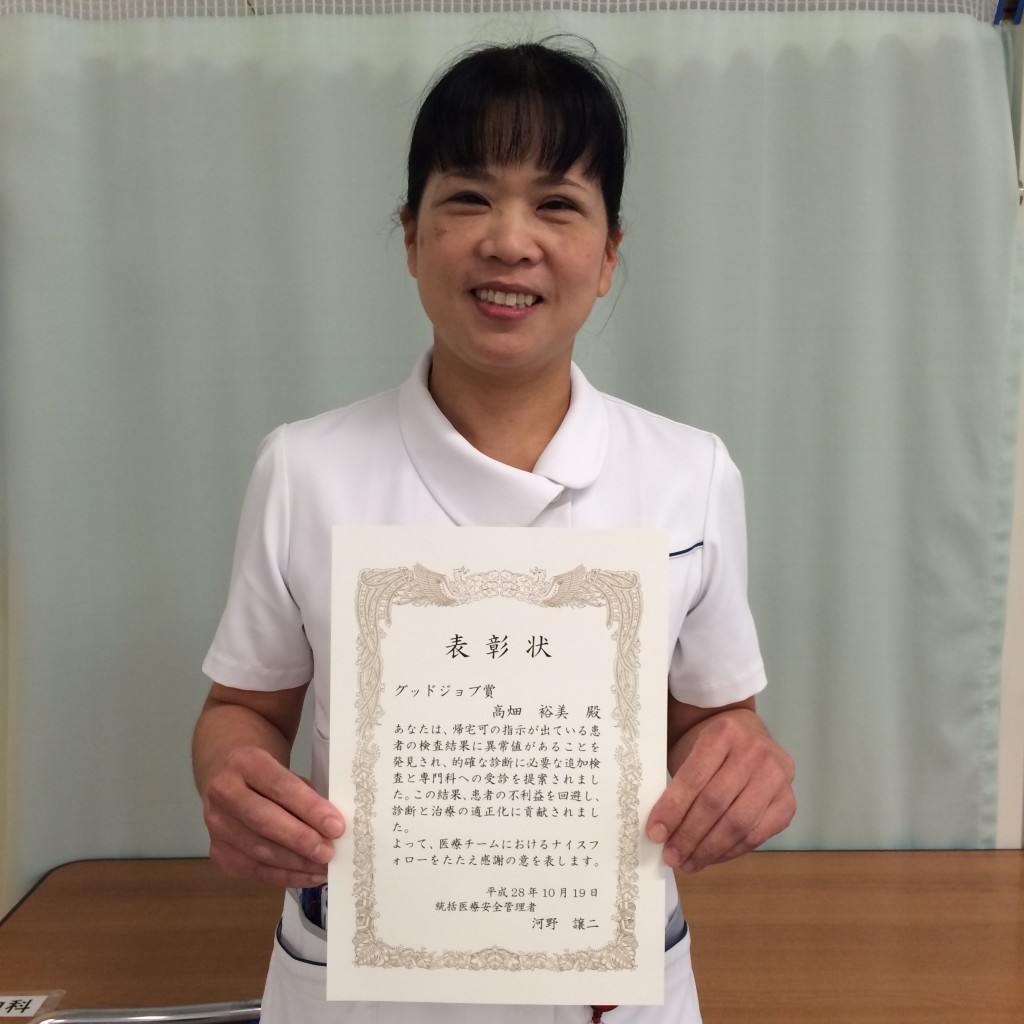 表彰状
グッドジョブ賞
高畑 裕美 殿
あなたは、帰宅可の指示が出ている患
者の検査結果に異常値があることを
発見され、的確な診断に必要な追加検
査と専門科への受診を提案されまし
た。この結果、患者の不利益を回避し、
診断と治療の適正化に貢献されまし
た。
よって、医療チームにおけるナイスフ
ォローをたたえ感謝の意を表します。
平成28年10月19日
統括医療安全管理者
河野 譲二
科